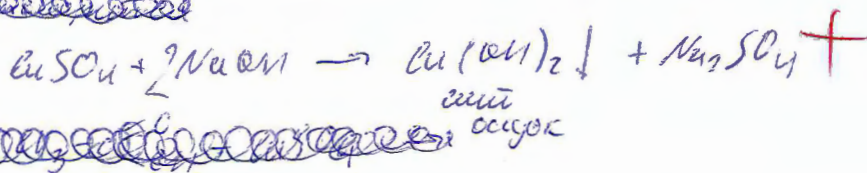 CuSO4 + 2NaOH → Cu(OH)2↓ + Na2SO4 +
синий
осадок